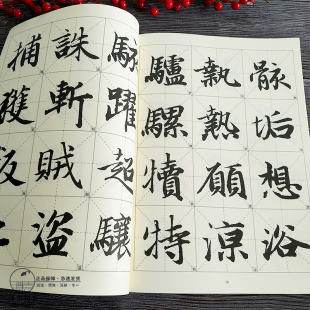 骸垢想浴
執熱願涼
驢騾犢特
駭躍超驤
誅斬賊盜
捕獲叛